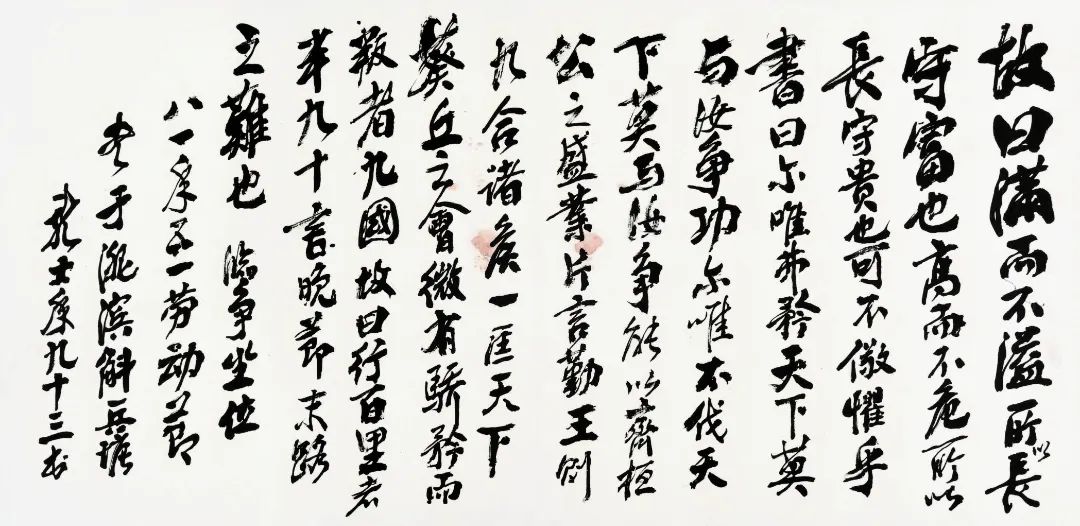 故曰滿而不溢所以長
守富也高而不危所以
長守貴也可不儆懼乎
書曰尔唯弗矜天下莫
与汝争功尔唯不伐天
下莫与汝争能以齊桓
公之盛業片言勤王則
九合诸侯一匡天下
葵丘之會微有驕矜而
叛者九國故曰行百里者
半九十言晚节末路
之難也 臨争坐位
八一年五一劳动节
书于洮滨斛兵塘
九十三书